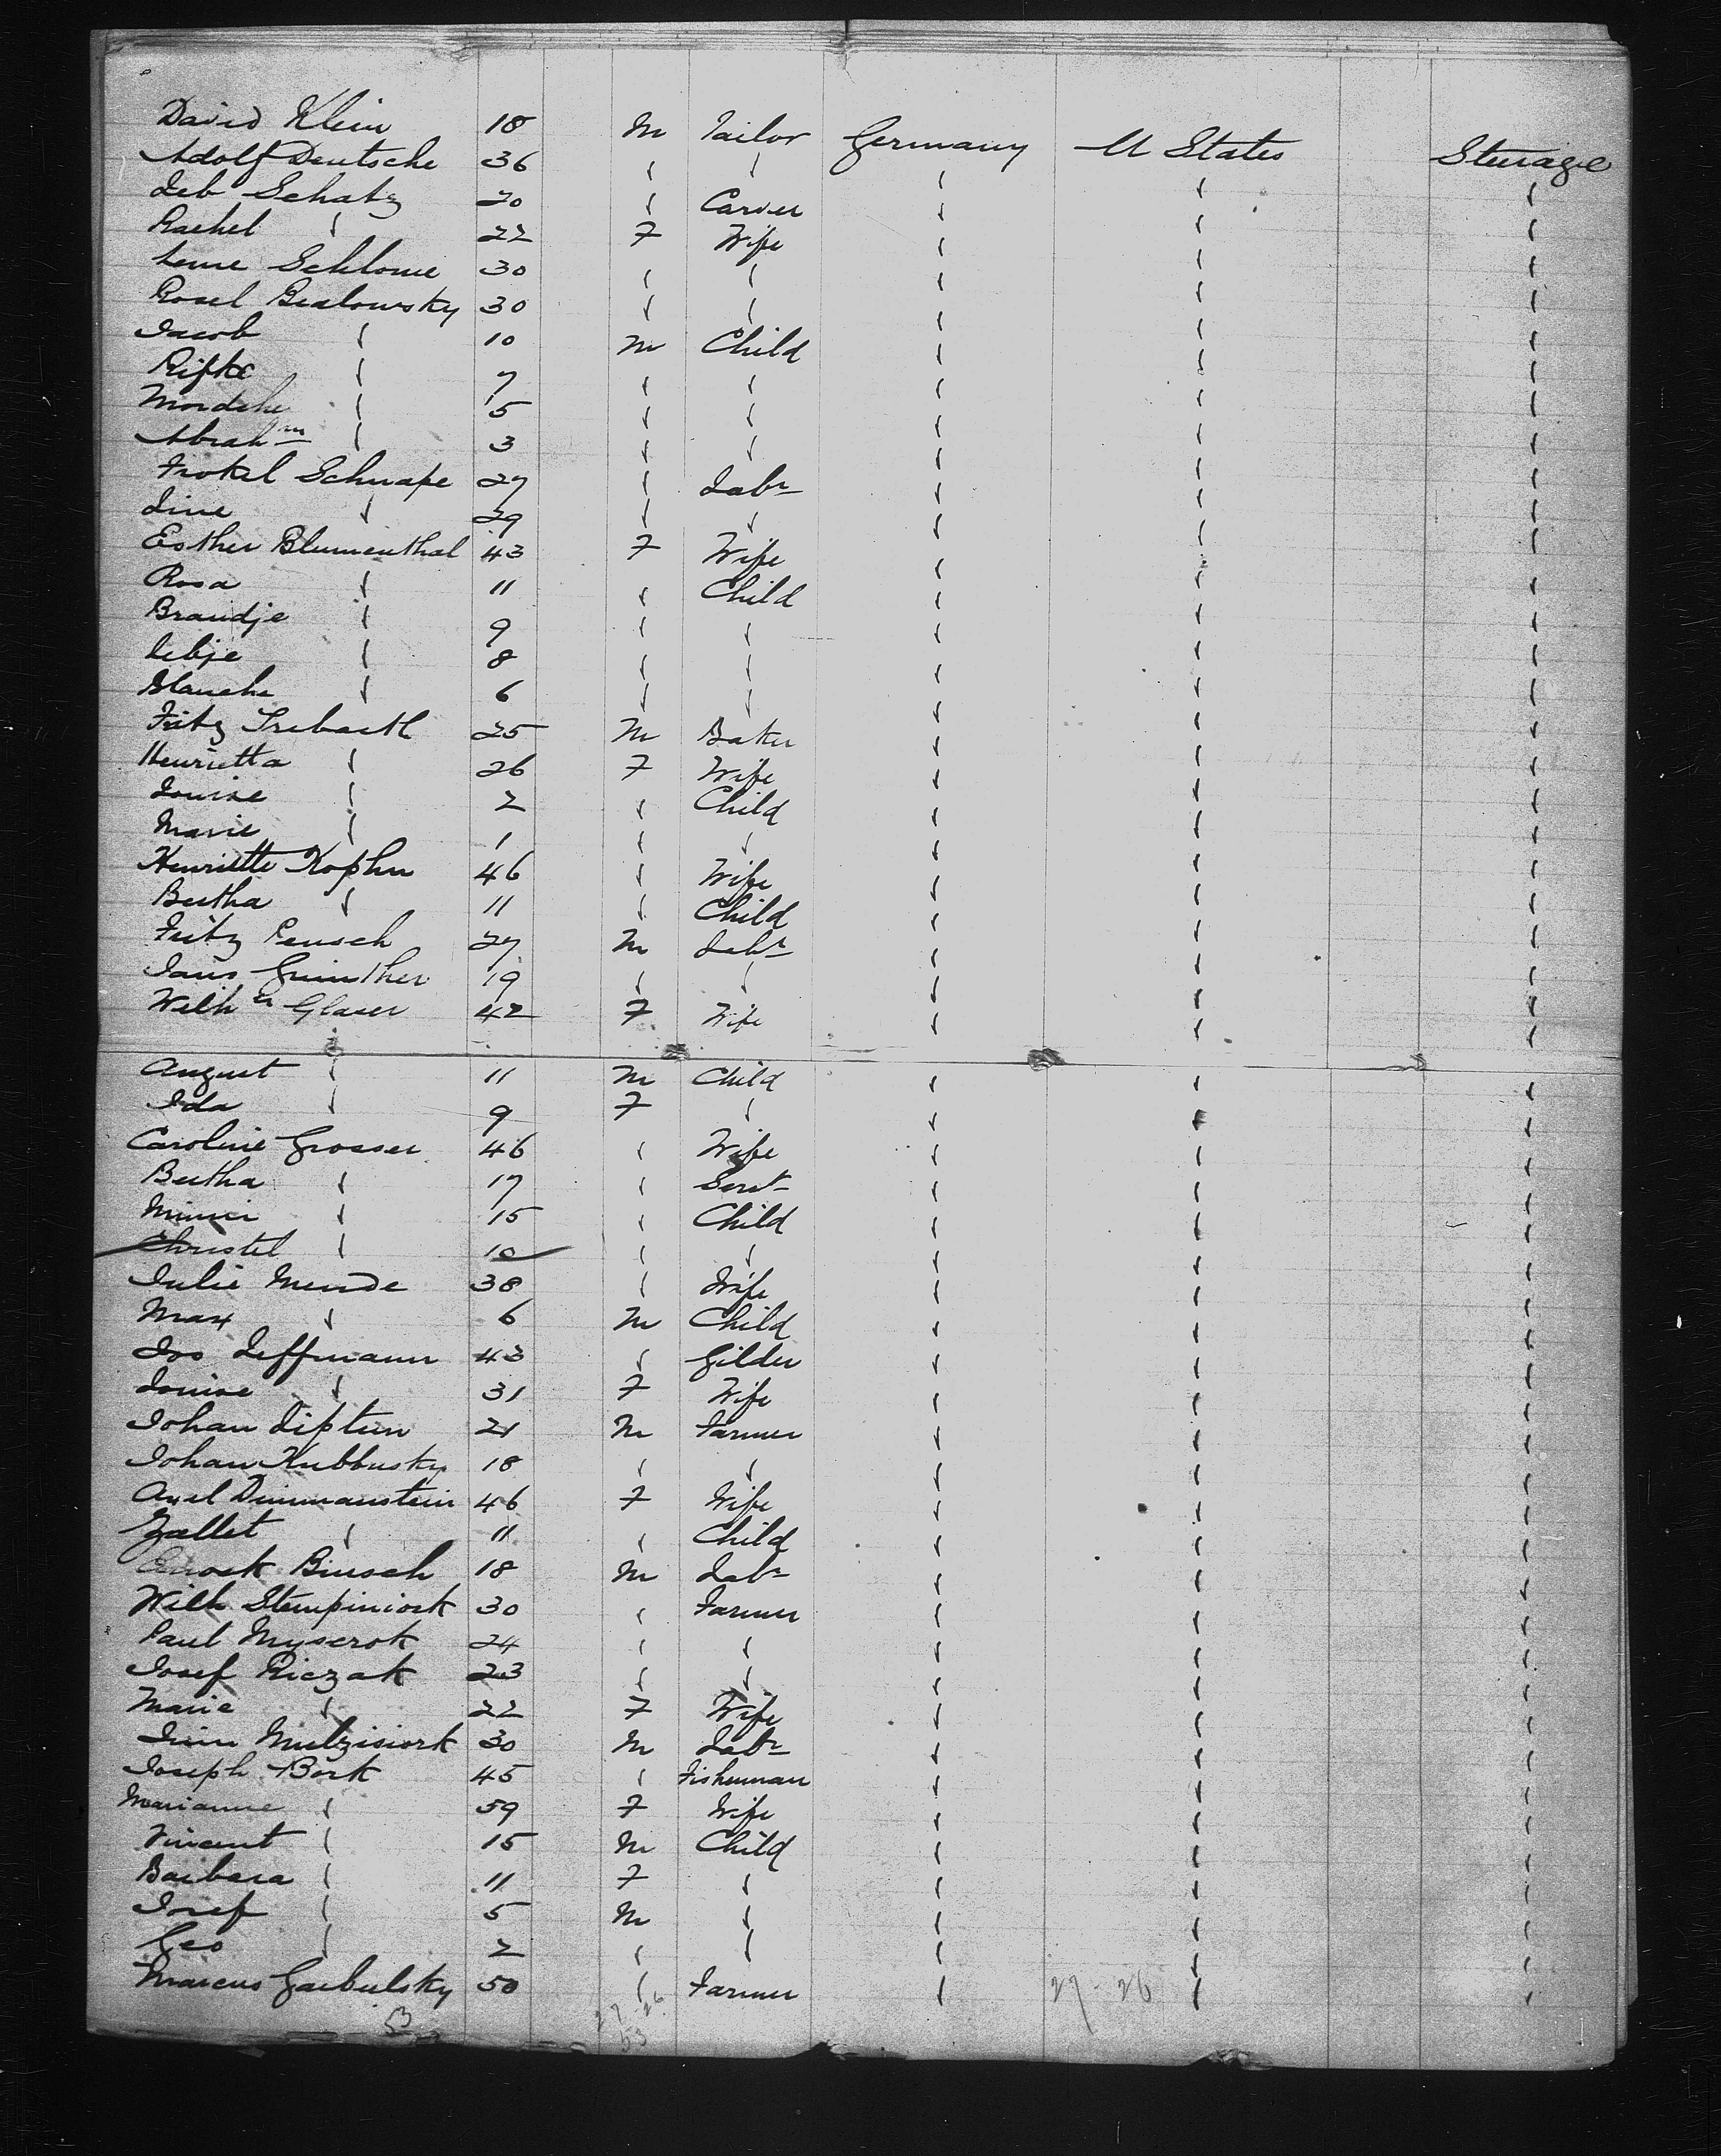 David Klein 18 M Tailor Germany U States Steerage
Adolf Deutsche 36 " " " " "
Leb Schatz 20 " Carver " " "
Rachel " 22 F Wife " " "
Schlome 30 " " " " "
Rosel Bealowsky 30 " " " " "
Jacob " 10 M Child " " "
Rifke " 7 " " " " "
Mordche " 5 " " " " "
Abrahm " 3 " " " " "
Frokel Schnape 27 " Labr " " "
Line " 29 " " " " "
Esther Blumenthal 43 F Wife " " "
Rosa " 11 " Child " " "
Brandje " 9 " " " " "
Libje " 8 " " " " "
Blanche " 6 " " " " "
Fritz Trebarth 25 M Baker " " "
Henrietta " 26 F Wife " " "
Louise " 2 " Child " " "
Marie " 1 " " " " "
Henriette Kophn 46 " Wife " " "
Bertha " 11 " Child " " "
Fritz Reusch 27 M Labr " " "
Jans Guinther 19 " " " " "
Welh a Glaser 42 F Wife " " "
August " 11 M Child " " "
Ida " 9 F " " " "
Caroline Grosser 46 " Wife " " "
Bertha " 17 " Servt " " "
Minni " 15 " Child " " "
Christel " 10 " " " " "
Julie Mende 38 " Wife " " "
Max " 6 M Child " " "
Jos Leffmann 43 " Gilder " " "
Louise " 31 F Wife " " "
Johan Liptein 21 M Farmer " " "
Johan Kubbusky 18 " " " " "
Axel Dimmanstein 46 F Wife " " "
Zallet " 11 " Child " " "
Binsch 18 M Labr " " "
Wilh Stempiniork 30 " Farmer " " "
Paul Myserok 24 " " " " "
Josef Riczak 23 " " " " "
Marie " 22 F Wife " " "
Mulzisiork 30 M Labr " " "
Joseph Bork 45 " Fisherman " " "
Marianne " 59 F Wife " " "
Vincent " 15 M Child " " "
Barbara " 11 F " " " "
Josef " 5 M " " " "
Geo " 2 " " " " "
Marcus Garbulsky 50 " Farmer " " "
27-26
53
27-26
53